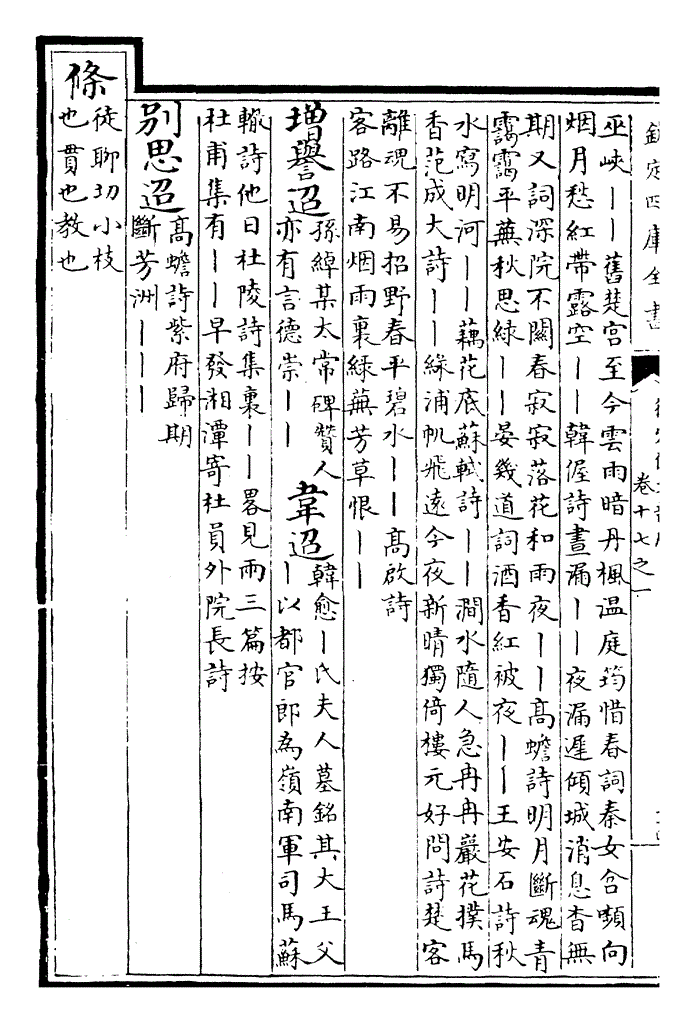 欽定四庫全書
卷十七之一
巫峽丨丨舊楚宮至今雲雨暗丹楓温庭筠惜春詞秦女含嚬向
烟月愁紅帶露空丨丨韓偓詩晝漏丨丨夜漏遲傾城消息杳無
期又詞深院不關春寂寂落花和雨夜丨丨高蟾詩明月斷魂青
靄靄平蕪秋思綠丨丨晏幾道詞酒香紅被夜丨丨王安石詩秋
水寫明河丨丨藕花底蘇軾詩丨丨澗水隨人急冉冉巖花撲馬
香范成大詩丨丨綠浦帆飛遠今夜新晴獨倚樓元好問詩楚客
離魂不易招野春平碧水丨丨高啟詩
客路江南烟雨裏綠蕪芳草恨丨丨
增譽迢
孫綽某太常碑贊人
亦有言德崇丨丨
韋迢
韓愈丨氏夫人墓銘其大王父
丨以都官郎為嶺南軍司馬蘇
轍詩他日杜陵詩集裏丨丨畧見兩三篇按
杜甫集有丨丨早發湘潭寄杜員外院長詩
別思迢
高蟾詩紫府歸期
斷芳洲丨丨丨
條
徒聊切小枝
也貫也教也